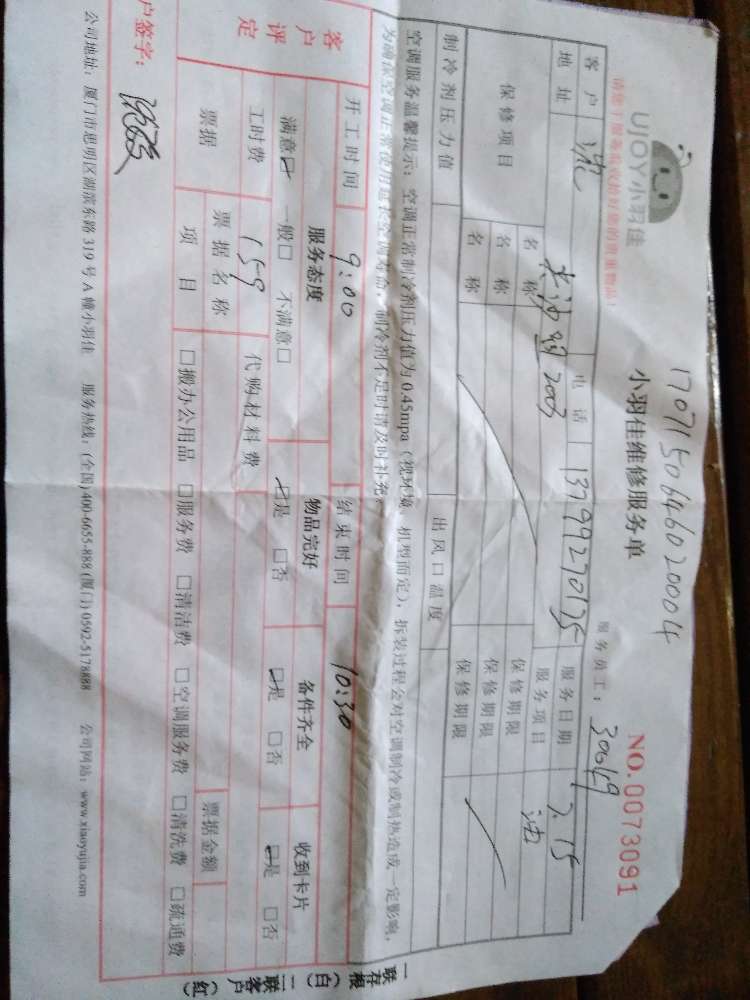 UJOY小羽佳
请您于服务验收前拾好您的贵重物品!
1707150646020004
小羽佳维修服务单
NO.0073091
服务员工: 30649
客户 电话 13799270135 服务日期 7.15
地址 2003 服务项目 油
保修项目 名称 保修期限
名称 保修期限
名称 保修期限
制冷剂压力值 出风口温度
空调服务温馨提示: 空调正常制冷剂压力值为0.45mpa (视环境、机型而定), 拆装过程会对空调制冷或制热造成一定影响,
为确保空调正常使用延长空调寿命, 制冷剂不足时请及时补充。
开工时间 9:00 结束时间 10:30
客户评定 服务态度 物品完好 备件齐全 收到卡片
满意☑ 一般□ 不满意□ ☑是 □否 ☑是 □否 ☑是 □否
工时费 159 代购材料费
票据 票据名称 票据金额
项目 □搬办公用品 □服务费 □清洁费 □空调服务费 □清洗费 □疏通费
户签字:
公司地址: 厦门市思明区湖滨东路319号A幢小羽佳 服务热线: (全国)400-6655-888 (厦门) 0592-5178888 公司网站: www.xiaoyujia.com
一联存根(白) 二联客户(红)